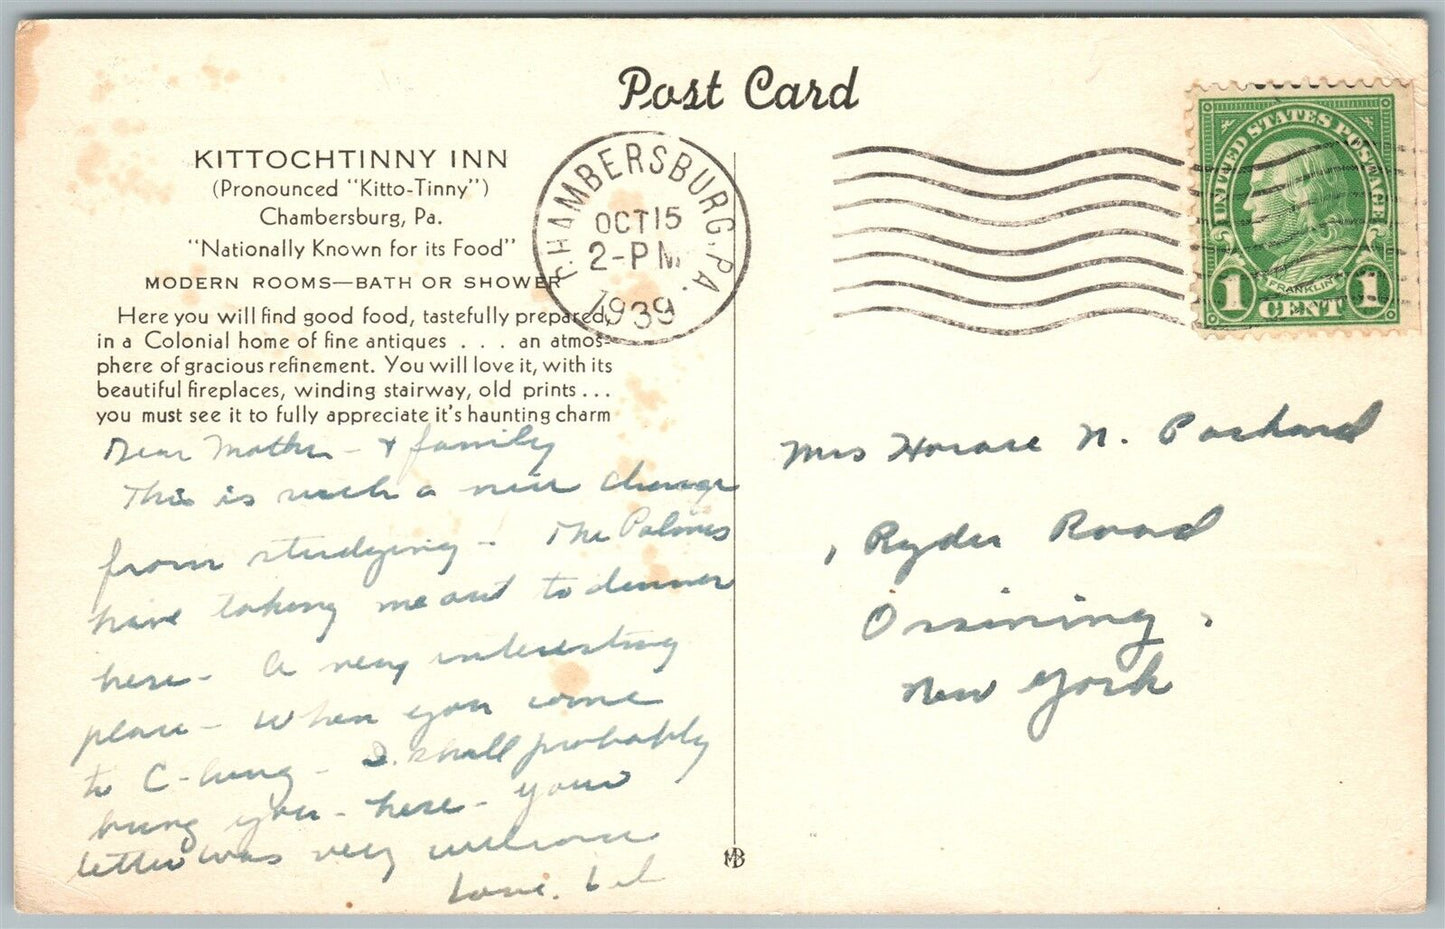 Post Card
KITTOCHTINNY INN
(Pronounced "Kitto-Tinny")
Chambersburg, Pa.
"Nationally Known for its Food"
MODERN ROOMS—BATH OR SHOWER
Here you will find good food, tastefully prepared,
in a Colonial home of fine antiques . . . an atmos-
phere of gracious refinement. You will love it, with its
beautiful fireplaces, winding stairway, old prints . . .
you must see it to fully appreciate it's haunting charm
Dear Mother - & family
This is such a nice change
from studying - The Palmers
have taking me out to dinner
here - A very interesting
place - When you come
to C-burg - I shall probably
bring you - here - your
letter was very welcome
Love,
CHAMBERSBURG, PA.
OCT 15
2-PM
1939
UNITED STATES POSTAGE
FRANKLIN
1 CENT 1
Mrs Horace N. Packard
Ryder Road
Ossining,
New York
MB